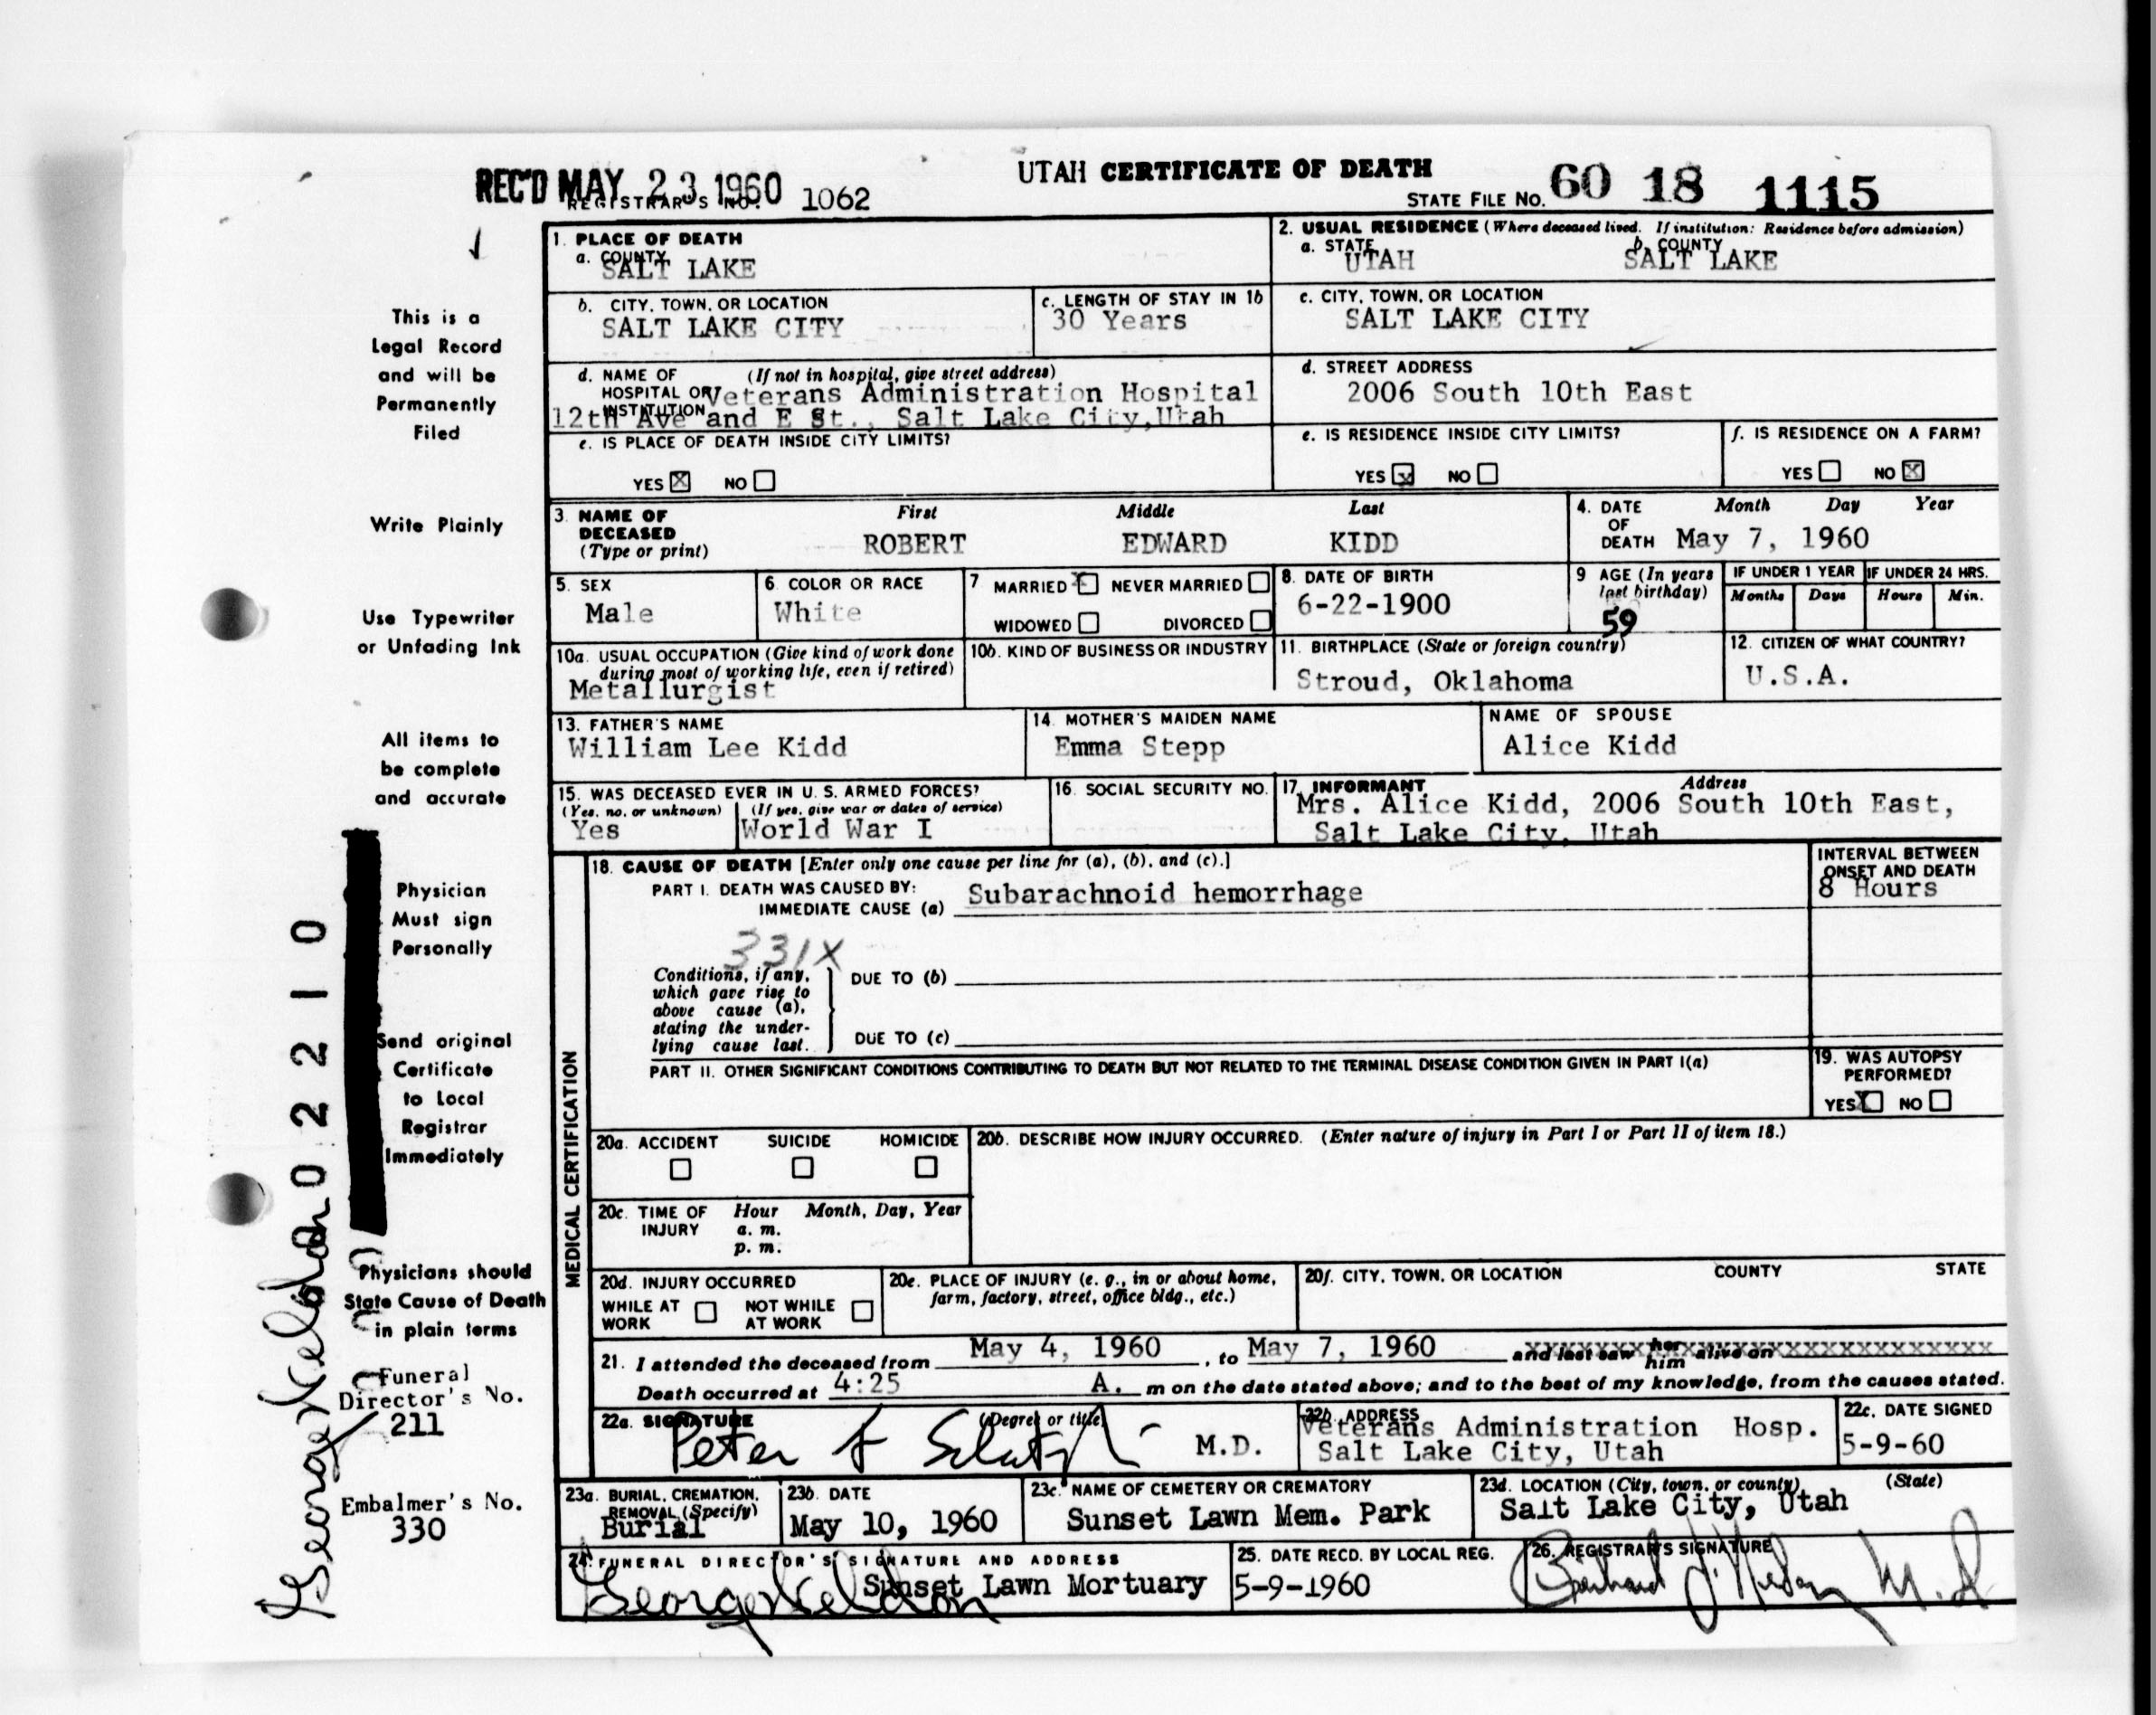 UTAH CERTIFICATE OF DEATH
REC'D MAY 23 1960
REGISTRAR'S NO. 1062
STATE FILE NO. 60 18 1115
This is a
Legal Record
and will be
Permanently
Filed
Write Plainly
Use Typewriter
or Unfading Ink
All items to
be complete
and accurate
Physician
Must sign
Personally
Send original
Certificate
to Local
Registrar
Immediately
Physicians should
State Cause of Death
in plain terms
Funeral
Director's No.
211
Embalmer's No.
330
022 10
1. PLACE OF DEATH
a. COUNTY
SALT LAKE
2. USUAL RESIDENCE (Where deceased lived. If institution: Residence before admission)
a. STATE b. COUNTY
UTAH SALT LAKE
b. CITY, TOWN, OR LOCATION
SALT LAKE CITY
c. LENGTH OF STAY IN 1b
30 Years
c. CITY, TOWN, OR LOCATION
SALT LAKE CITY
d. NAME OF (If not in hospital, give street address)
HOSPITAL OR Veterans Administration Hospital
INSTITUTION
12th Ave and E St., Salt Lake City,Utah
d. STREET ADDRESS
2006 South 10th East
e. IS PLACE OF DEATH INSIDE CITY LIMITS?
YES X NO
e. IS RESIDENCE INSIDE CITY LIMITS?
YES x NO
f. IS RESIDENCE ON A FARM?
YES NO X
3. NAME OF First Middle Last
DECEASED
(Type or print) ROBERT EDWARD KIDD
4. DATE Month Day Year
OF
DEATH May 7, 1960
5. SEX
Male
6. COLOR OR RACE
White
7 MARRIED X NEVER MARRIED
WIDOWED DIVORCED
8. DATE OF BIRTH
6-22-1900
9 AGE (In years
last birthday)
59
IF UNDER 1 YEAR IF UNDER 24 HRS.
Months Days Hours Min.
10a. USUAL OCCUPATION (Give kind of work done
during most of working life, even if retired)
Metallurgist
10b. KIND OF BUSINESS OR INDUSTRY
11. BIRTHPLACE (State or foreign country)
Stroud, Oklahoma
12. CITIZEN OF WHAT COUNTRY?
U.S.A.
13. FATHER'S NAME
William Lee Kidd
14. MOTHER'S MAIDEN NAME
Emma Stepp
NAME OF SPOUSE
Alice Kidd
15. WAS DECEASED EVER IN U. S. ARMED FORCES?
(Yes, no, or unknown) (If yes, give war or dates of service)
Yes World War I
16. SOCIAL SECURITY NO.
17. INFORMANT Address
Mrs. Alice Kidd, 2006 South 10th East,
Salt Lake City, Utah
MEDICAL CERTIFICATION
18. CAUSE OF DEATH [Enter only one cause per line for (a), (b), and (c).]
PART I. DEATH WAS CAUSED BY:
IMMEDIATE CAUSE (a) Subarachnoid hemorrhage
INTERVAL BETWEEN
ONSET AND DEATH
8 Hours
331X
Conditions, if any,
which gave rise to
above cause (a),
stating the under-
lying cause last.
DUE TO (b)
DUE TO (c)
PART II. OTHER SIGNIFICANT CONDITIONS CONTRIBUTING TO DEATH BUT NOT RELATED TO THE TERMINAL DISEASE CONDITION GIVEN IN PART I(a)
19. WAS AUTOPSY
PERFORMED?
YES X NO
20a. ACCIDENT SUICIDE HOMICIDE
20b. DESCRIBE HOW INJURY OCCURRED. (Enter nature of injury in Part I or Part II of item 18.)
20c. TIME OF Hour Month, Day, Year
INJURY a. m.
p. m.
20d. INJURY OCCURRED
WHILE AT NOT WHILE
WORK AT WORK
20e. PLACE OF INJURY (e. g., in or about home,
farm, factory, street, office bldg., etc.)
20f. CITY, TOWN, OR LOCATION COUNTY STATE
21. I attended the deceased from May 4, 1960, to May 7, 1960 and last saw her him alive on
Death occurred at 4:25 A. m on the date stated above; and to the best of my knowledge, from the causes stated.
22a. SIGNATURE (Degree or title)
Peter M.D.
22b. ADDRESS
Veterans Administration Hosp.
Salt Lake City, Utah
22c. DATE SIGNED
5-9-60
23a. BURIAL, CREMATION,
REMOVAL (Specify)
Burial
23b. DATE
May 10, 1960
23c. NAME OF CEMETERY OR CREMATORY
Sunset Lawn Mem. Park
23d. LOCATION (City, town, or county) (State)
Salt Lake City, Utah
24. FUNERAL DIRECTOR'S SIGNATURE AND ADDRESS
George Sunset Lawn Mortuary
25. DATE RECD. BY LOCAL REG.
5-9-1960
26. REGISTRAR'S SIGNATURE
M.D.
George